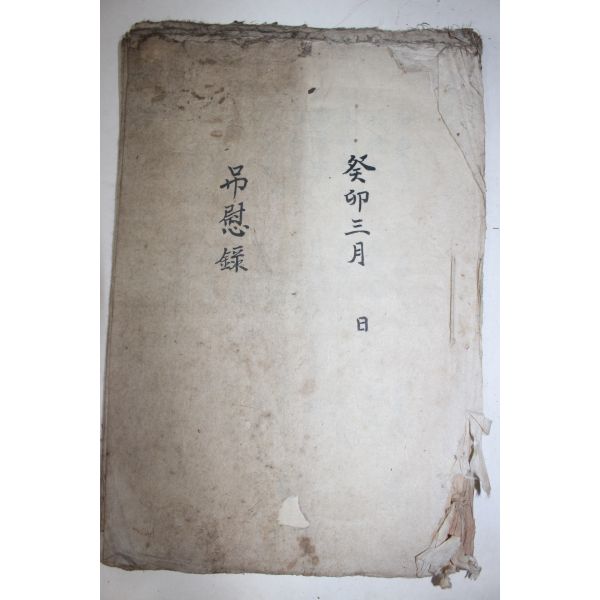 癸卯三月 日
吊慰錄